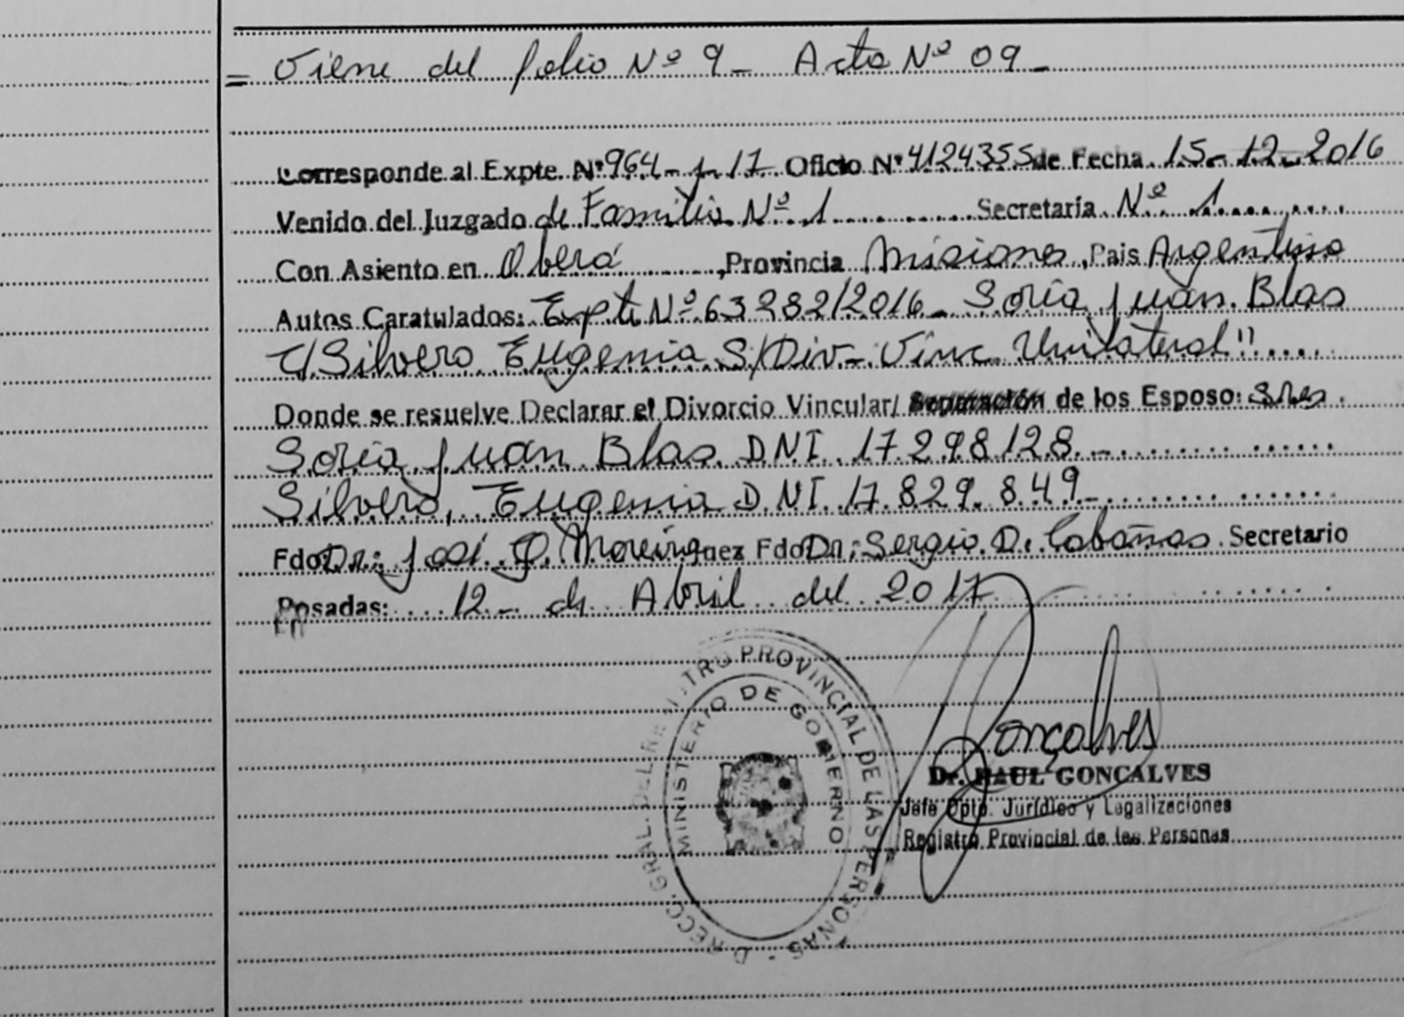 = Viene del folio Nº 9 - Acta Nº 09 -
Corresponde al Expte. Nº 964-J-17 Oficio Nº 4124355 de Fecha 15-12-2016
Venido del Juzgado de Familia Nº 1 Secretaria Nº 1
Con Asiento en Oberá, Provincia Misiones, Pais Argentina
Autos Caratulados: Expte Nº 63282/2016 - Soria Juan Blas
C/ Silvero Eugenia S/Div- Vinc Unilateral"
Donde se resuelve Declarar el Divorcio Vincular/ Separación de los Esposo: Sres
Soria Juan Blas DNI 17298128 -
Silvero, Eugenia DNI 17.829.849 -
Fdo Dr: José G. Juez Fdo Dr: Sergio D. Cabañas Secretario
Posadas: 12 - de Abril del 2017
Goncalves
Dr. RAUL GONCALVES
Jefe Dpto. Jurídico y Legalizaciones
Registro Provincial de las Personas
GRAL. PROVINCIAL DE LAS PERSONAS
MINISTERIO DE GOBIERNO